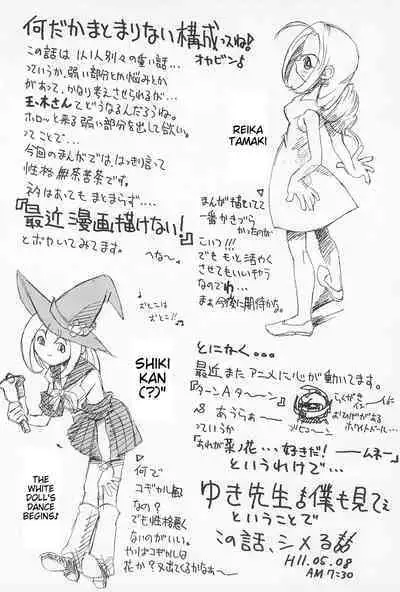 何だかまとまりない構成ってね!
オヤビン♪
この話は1人1人別々の重い話…
っていうか、弱い部分とか悩みとか
があって、かなり考えさせられるが…
玉木さんてどうなるんだろうね。
ホロッと来る弱い部分を出して欲しい。
ってことで…
今回のまんがでは、はっきり言って
性格無茶苦茶です。
ネタはあってもまとまらず…
『最近漫画描けない!』
とボヤいてみてます。
へな〜
REIKA
TAMAKI
まんが描いてて
一番かきづら
かったのが
こいつ!!!
でももっと活やく
させてもいいキャラ
なので
まぁ今後に期待かな。
おとこは
おとこ!!♪
SHIKI
KAN
(?)"
THE
WHITE
DOLL'S
DANCE
BEGINS♪
何で
コギャル風
なの?
でも性格悪く
ないのがいい。
とにかく…
最近またアニメに心が動いてます。
『ターンAターーン』
らくがき
おひげがある
ホワイトドール…
っていうか
「あれが菜ノ花…好きだ!
というわけで…
ゆき先生も僕も見てぇ
ということで
この話、シメる
H11.05.08
AM 7:30